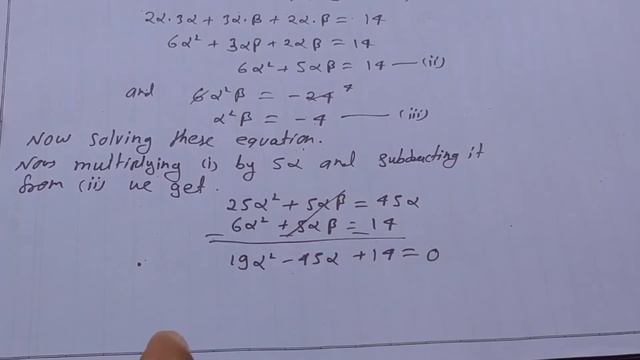 2α·3α + 3α·β + 2α·β = 14
6α² + 3αβ + 2αβ = 14
6α² + 5αβ = 14 — (ii)
and 6α²β = -24 4
α²β = -4 — (iii)
Now solving these equation.
Now multiplying (i) by 5α and subtracting it
from (ii) we get.
25α² + 5αβ = 45α
6α² + 5αβ = 14
19α² - 45α + 14 = 0